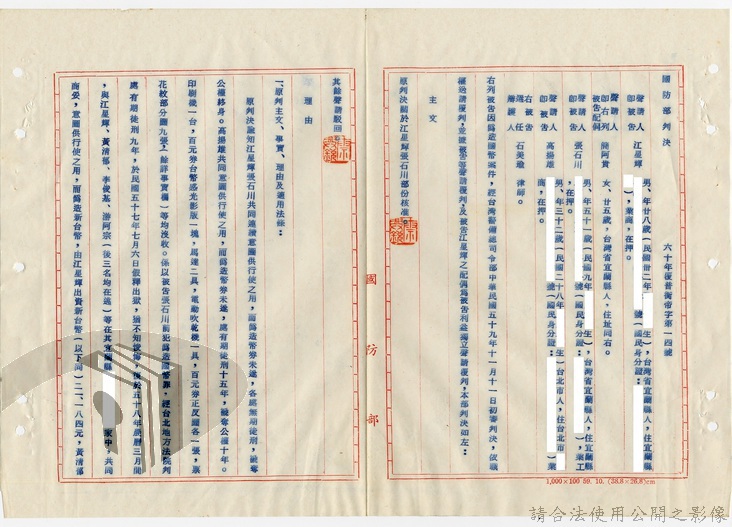 國防部判決
六十年覆普衛字第一四號
聲請人 即被告 江星輝 男、年廿八歲(民國卅二年 生)，台灣省宜蘭縣人，住宜蘭縣
號(國民身分證：
)，業商，在押。
聲請人 即右列被告配偶 簡阿賞 女、廿五歲，台灣省宜蘭縣人，住址同右。
聲請人 即被告 張石川 男、年五十一歲(民國九年 生)，台灣省宜蘭縣人，住宜蘭縣
號(國民身分證： )，業工
，在押。
聲請人 即被告 高揚雄 男、年三十二歲(民國二十八年 生)台北市人，住台北市
號(國民身分證： )業
商，在押。
右被告 選任辯護人 石美瑜 律師。
右列被告因偽造國幣案件，經台灣警備總司令部中華民國五十九年十一月十一日初審判決，依職
權送請覆判，並據被告等聲請覆判，及被告江星輝之配偶為被告利益獨立聲請覆判，本部判決如左：
主文
原判決關於江星輝張石川部份核准。
其餘聲請駁回。
理由
一、原判主文、事實、理由及適用法條：
原判決論知江星輝張石川共同連續意圖供行使之用，而偽造幣券未遂，各處無期徒刑，褫奪
公權終身。高揚雄共同意圖供行使之用，而偽造幣券未遂，處有期徒刑十五年，褫奪公權十年。
印刷機一台，百元券台幣感光影版一塊，馬達二具，電動吹乾機一具，百元券正反面各一張，票
花紋部分圖九張(餘詳事實欄)等均沒收。係以被告張石川前犯偽造國幣罪，經台北地方法院判
處有期徒刑九年，於民國五十七年七月六日假釋出獄，猶不知悛悔，復於五十八年農曆三月間
，與江星輝、黃清郁、李俊基、游阿宗(後三名均在逃)等在其宜蘭縣 家中，共同
商妥，意圖供行使之用，而偽造新台幣，由江星輝出資新台幣(以下同)二、一八四元，黃清郁
國防部
1,000×100 59. 10. (38.8×26.8)cm
請合法使用公開之影像